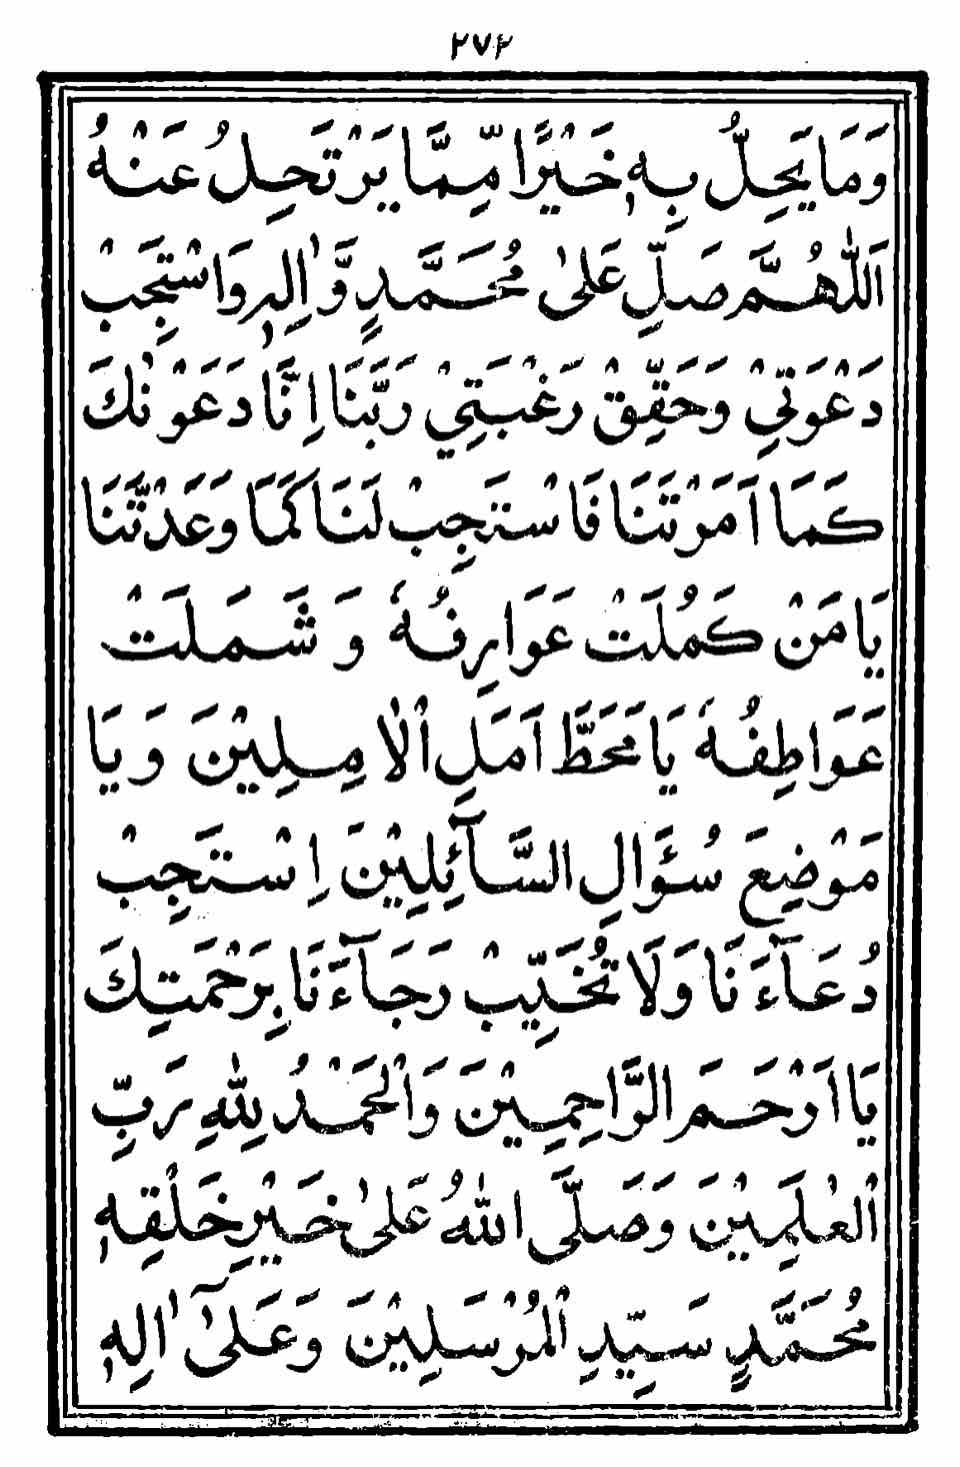 ٢٧٢
وَمَا يَحِلُّ بِهٖ خَيْرًا مِّمَّا يَرْتَحِلُ عَنْهُ
اَللّٰهُمَّ صَلِّ عَلٰى مُحَمَّدٍ وَّاٰلِهٖ وَاسْتَجِبْ
دَعْوَتِيْ وَحَقِّقْ رَغْبَتِيْ رَبَّنَا اِنَّا دَعَوْنٰكَ
كَمَا اَمَرْتَنَا فَاسْتَجِبْ لَنَا كَمَا وَعَدْتَّنَا
يَا مَنْ كَمُلَتْ عَوَارِفُهٗ وَ شَمَلَتْ
عَوَاطِفُهٗ يَا مَحَطَّ اَمَلِ الْاٰمِلِيْنَ وَ يَا
مَوْضِعَ سُؤَالِ السَّآئِلِيْنَ اِسْتَجِبْ
دُعَآءَنَا وَلَا تُخَيِّبْ رَجَآءَنَا بِرَحْمَتِكَ
يَا اَرْحَمَ الرَّاحِمِيْنَ وَالْحَمْدُ لِلّٰهِ رَبِّ
الْعٰلَمِيْنَ وَصَلَّى اللّٰهُ عَلٰى خَيْرِ خَلْقِهٖ
مُحَمَّدٍ سَيِّدِ الْمُرْسَلِيْنَ وَعَلٰٓى اٰلِهٖ